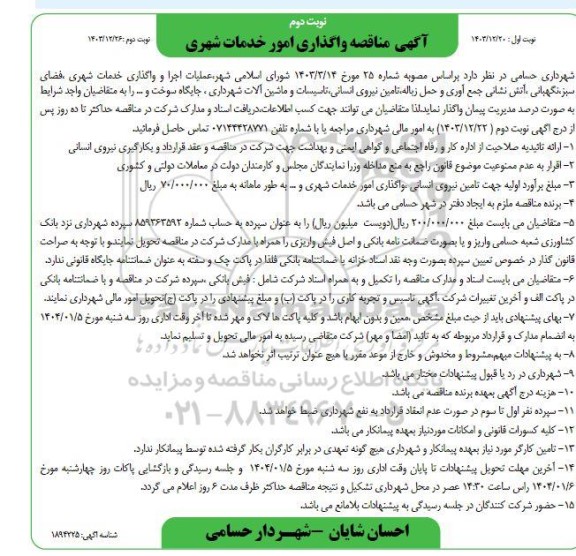 نوبت دوم
نوبت اول: ۱۴۰۳/۱۲/۲۰
آگهی مناقصه واگذاری امور خدمات شهری
نوبت دوم: ۱۴۰۳/۱۲/۲۶
شهرداری حسامی در نظر دارد براساس مصوبه شماره ۲۵ مورخ ۱۴۰۳/۳/۱۴ شورای اسلامی شهر،عملیات اجرا و واگذاری خدمات شهری ،فضای
سبز،نگهبانی ،آتش نشانی جمع آوری و حمل زباله،تامین نیروی انسانی،تاسیسات و ماشین آلات شهرداری ، جایگاه سوخت و ... را به متقاضیان واجد شرایط
به صورت درصد مدیریت پیمان واگذار نماید.لذا متقاضیان می توانند جهت کسب اطلاعات،دریافت اسناد و مدارک شرکت در مناقصه حداکثر تا ده روز پس
از درج آگهی نوبت دوم ( ۱۴۰۳/۱۲/۲۲) به امور مالی شهرداری مراجعه یا با شماره تلفن ۰۷۱۴۴۴۲۸۷۷۱ تماس حاصل فرمائید.
۱- ارائه تائیدیه صلاحیت از اداره کار و رفاه اجتماعی و گواهی ایمنی و بهداشت جهت شرکت در مناقصه و عقد قرارداد و بکارگیری نیروی انسانی
۲- اقرار به عدم ممنوعیت موضوع قانون راجع به منع مداخله وزرا نمایندگان مجلس و کارمندان دولت در معاملات دولتی و کشوری
۳- مبلغ برآورد اولیه جهت تامین نیروی انسانی ،واگذاری امور خدمات شهری و ... به طور ماهانه به مبلغ ۷۰/۰۰۰/۰۰۰ ریال
۴- برنده مناقصه ملزم به ایجاد دفتر در شهر حسامی می باشد.
۵- متقاضیان می بایست مبلغ ۲۰۰/۰۰۰/۰۰۰ ریال(دویست میلیون ریال) را به عنوان سپرده به حساب شماره ۸۵۹۳۶۳۵۹۲ سپرده شهرداری نزد بانک
کشاورزی شعبه حسامی واریز و یا بصورت ضمانت نامه بانکی و اصل فیش واریزی را همراه با مدارک شرکت در مناقصه تحویل نمایند.و با توجه به صراحت
قانون گذار در خصوص تعیین سپرده بصورت وجه نقد اسناد خزانه یا ضمانتنامه بانکی فلذا در پاکت چک و سفته به عنوان ضمانتنامه جایگاه قانونی ندارد.
۶- متقاضیان می بایست اسناد و مدارک مناقصه را تکمیل و به همراه اسناد شرکت شامل : فیش بانکی ،سپرده شرکت در مناقصه و یا ضمانتنامه بانکی
در پاکت الف و آخرین تغییرات شرکت ،آگهی تاسیس و تجربه کاری را در پاکت (ب) و مبلغ پیشنهادی را در پاکت (ج)تحویل امور مالی شهرداری نمایند.
۷- بهای پیشنهادی باید از حیث مبلغ مشخص ،معین و بدون ابهام باشد و کلیه پاکت ها لاک و مهر شده تا آخر وقت اداری روز سه شنبه مورخ ۱۴۰۴/۰۱/۵
به انضمام مدارک و قرارداد مربوطه که به تائید (امضا و مهر) شرکت متقاضی رسیده به امور مالی تحویل و تسلیم نماید.
۸- به پیشنهادات مبهم،مشروط و مخدوش و خارج از موعد مقرر یا هیچ عنوان ترتیب اثر نخواهد شد.
۹- شهرداری در رد یا قبول پیشنهادات مختار می باشد.
۱۰- هزینه درج آگهی بعهده برنده مناقصه می باشد.
۱۱- سپرده نفر اول تا سوم در صورت عدم انعقاد قرارداد به نفع شهرداری ضبط خواهد شد.
۱۲- کلیه کسورات قانونی و امکانات موردنیاز بعهده پیمانکار می باشد.
۱۳- تامین کارگر مورد نیاز بعهده پیمانکار و شهرداری هیچ گونه تعهدی در برابر کارگران بکار گرفته شده توسط پیمانکار ندارد.
۱۴- آخرین مهلت تحویل پیشنهادات تا پایان وقت اداری روز سه شنبه مورخ ۱۴۰۴/۰۱/۵ و جلسه رسیدگی و بازگشایی پاکات روز چهارشنبه مورخ
۱۴۰۴/۰۱/۶ راس ساعت ۱۴:۳۰ عصر در محل شهرداری تشکیل و نتیجه مناقصه حداکثر ظرف مدت ۶ روز اعلام می گردد.
۱۵- حضور شرکت کنندگان در جلسه رسیدگی به پیشنهادات بلامانع می باشد.
پایگاه اطلاع رسانی مناقصه و مزایده
۰۲۱-۸۸۳۴۹۶۷۰-۵
احسان شایان - شهردار حسامی
شناسه آگهی: ۱۸۹۴۲۲۵